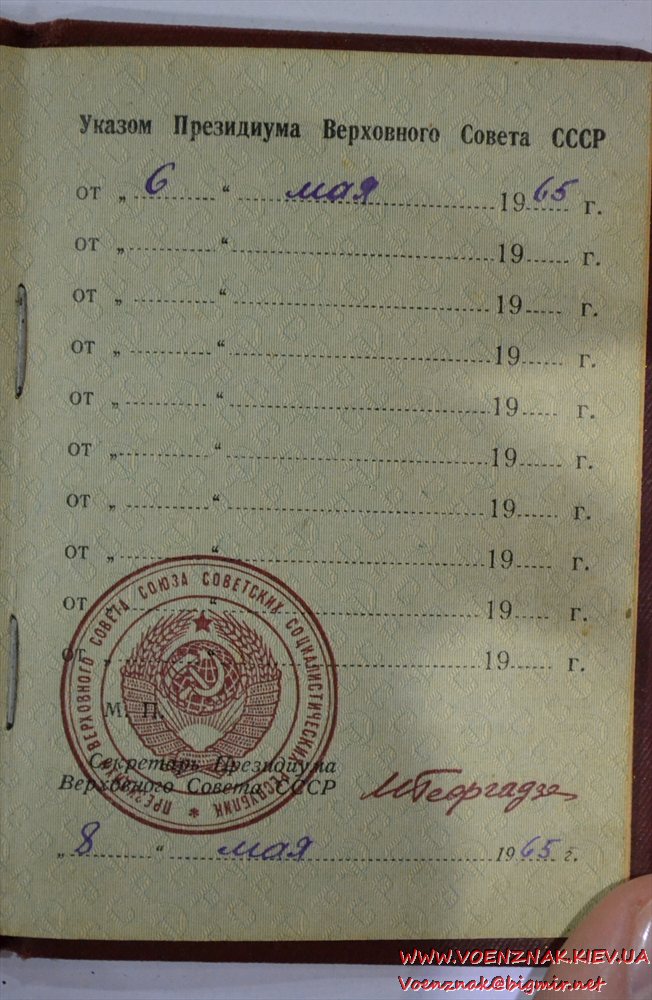 Указом Президиума Верховного Совета СССР
от „ 6 “ мая 1965 г.
от „ “ 19 г.
от „ “ 19 г.
от „ “ 19 г.
от „ “ 19 г.
от „ “ 19 г.
от „ “ 19 г.
от „ “ 19 г.
от „ “ 19 г.
от „ “ 19 г.
ПРЕЗИДИУМ ВЕРХОВНОГО СОВЕТА СОЮЗА СОВЕТСКИХ СОЦИАЛИСТИЧЕСКИХ РЕСПУБЛИК
М. П.
Секретарь Президиума
Верховного Совета СССР
МГеоргадзе
„ 8 “ мая 1965 г.
WWW.VOENZNAK.KIEV.UA
Voenznak@bigmir.net